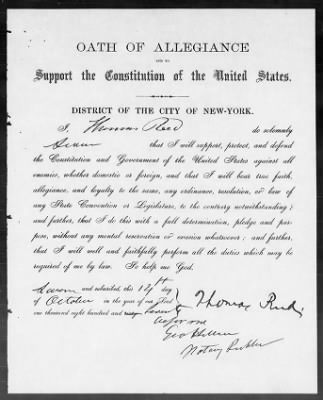 OATH OF ALLEGIANCE
AND TO
Support the Constitution of the United States.
DISTRICT OF THE CITY OF NEW-YORK.
I, Thomas Reed do solemnly
Swear that I will support, protect, and defend
the Constitution and Government of the United States against all
enemies, whether domestic or foreign, and that I will bear true faith,
allegiance, and loyalty to the same, any ordinance, resolution, or law of
any State Convention or Legislature, to the contrary notwithstanding;
and further, that I do this with a full determination, pledge and pur-
pose, without any mental reservation or evasion whatsoever; and further,
that I will well and faithfully perform all the duties which may be
required of me by law. So help me God.
Sworn and subscribed, this 12th day
of October in the year of our Lord
one thousand eight hundred and sixty
Thomas
before me
Geo
Notary Public